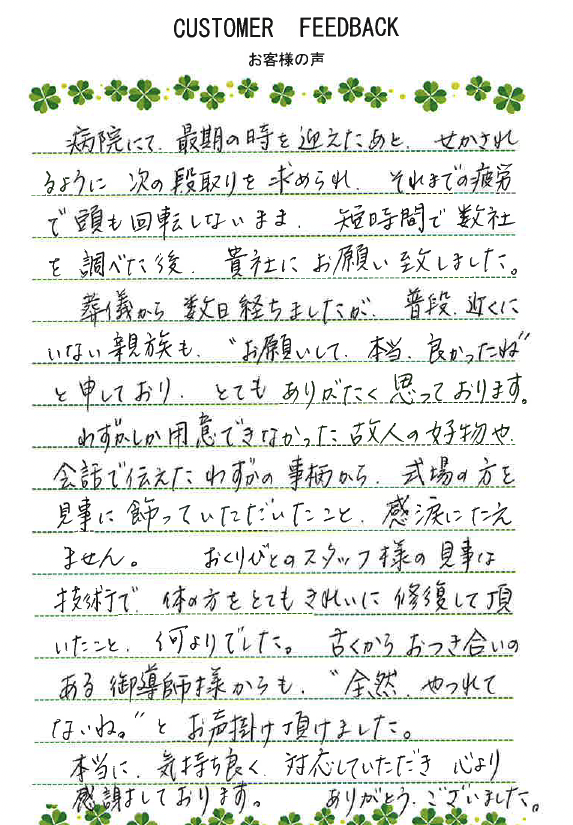 CUSTOMER FEEDBACK
お客様の声
病院にて、最期の時を迎えたあと、せかされ
るように 次の段取りを求められ、それまでの疲労
で頭も回転しないまま、短時間で数社
を調べた後、貴社にお願い致しました。
葬儀から数日経ちましたが、普段、近くに
いない親族も、“お願いして、本当、良かったね”
と申しており、とてもありがたく思っております。
わずかしか用意できなかった故人の好物や、
会話で伝えたわずかの事柄から、式場の方を
見事に飾っていただいたこと、感涙にたえ
ません。 おくりびとのスタッフ様の見事な
技術で 体の方をとてもきれいに修復して頂
いたこと、何よりでした。 古くからおつき合いの
ある御導師様からも、“全然、やつれて
ないね。”とお声掛け頂けました。
本当に、気持ち良く、対応していただき 心より
感謝しております。 ありがとうございました。